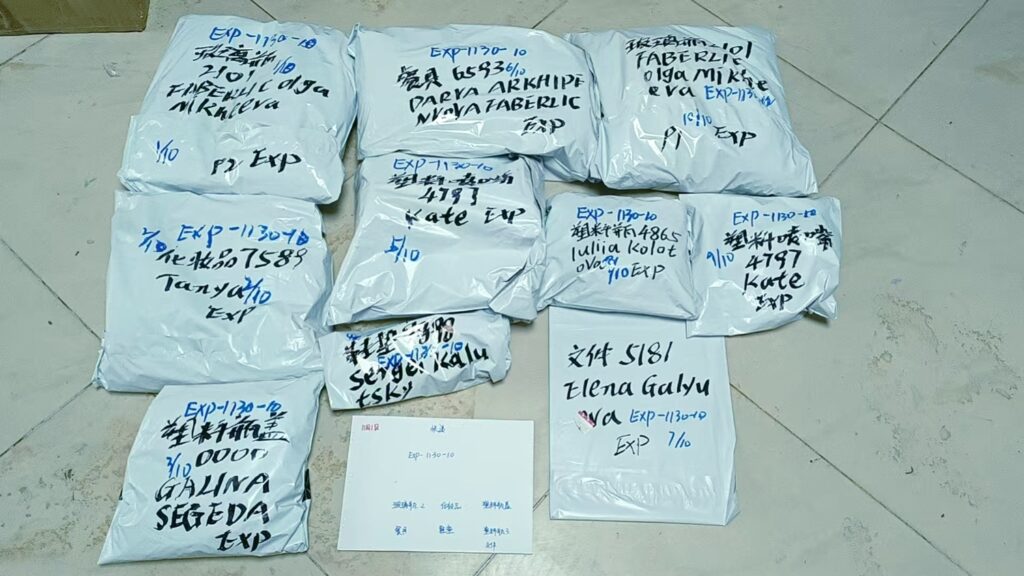 EXP-1130-10
玻璃瓶
2101 1/10
FABERLIC olga
Mikheeva
1/10
P2 EXP
EXP-1130-10
餐具 6593 6/10
DARYA ARKHIPE
NVOVA FABERLIC
EXP
玻璃瓶 2101
FABERLIC
olga Mikhe
eva EXP-1130-10
10/10
P1 EXP
2/10 EXP-1130-10
化妆品 7589
Tanya 2/10
EXP
EXP-1130-10
塑料喷嘴
4797
Kate EXP
5/10
EXP-1130-10
塑料瓶 4865
iuliia Kolot
ova
EXP
EXP-1130-10
塑料喷嘴
9/10 4797
Kate
EXP
EXP-1130-10
sergei Kalu
tsky
文件 5181
Elena Galyu
va EXP-1130-10
EXP 7/10
EXP-1130-10
塑料瓶盖
3/10 0000
GALINA
SEGEDA
EXP
EXP-1130-10
玻璃瓶 2 化妆品 塑料瓶盖
餐具 鞋垫 塑料瓶 3
文件